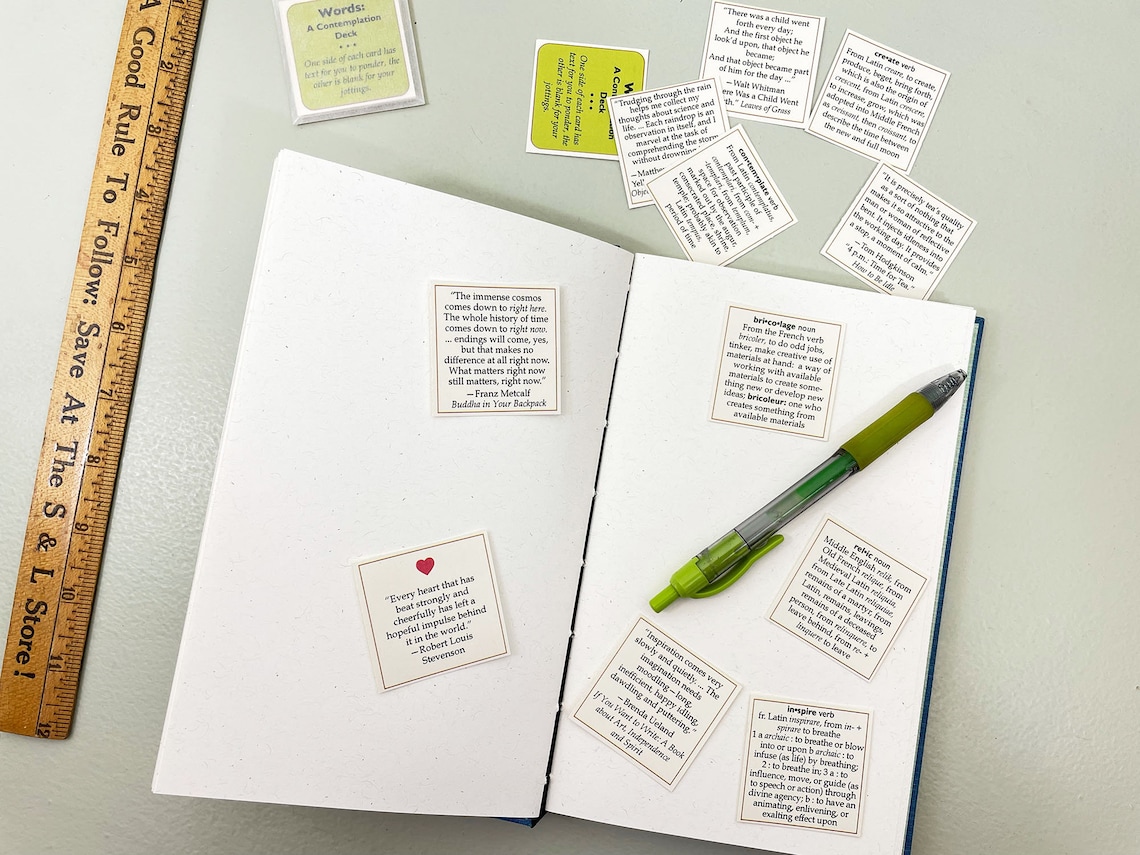 A Good Rule To Follow: Save At The S & L Store!
2
3
4
5
6
7
8
9
10
11
12
Words:
A Contemplation
Deck
• • •
One side of each card has
text for you to ponder, the
other is blank for your
jottings.
A Con
Deck
• • •
One side of each card has
text for you to ponder, the
other is blank for your
jottings.
"Trudging through the rain
helps me collect my
thoughts about science and
life. ... Each raindrop is an
observation in itself, and I
marvel at the task of
comprehending the storm
without drowning
"There was a child went
forth every day;
And the first object he
look'd upon, that object he
became;
And that object became part
of him for the day ..."
—Walt Whitman
ere Was a Child Went
rth." Leaves of Grass
cre•ate verb
From Latin creare, to create,
produce, beget, bring forth,
which is also the origin of
crescent, from Latin crescere,
to increase, grow, which was
adopted into Middle French
as croissant, then croissant, to
describe the time between
the new and full moon
con•tem•plate verb
From Latin contemplatus,
past participle of
contemplari, from com- +
-templari, from templum,
space for observation
marked out by the augur,
consecrated place, shrine,
temple; probably akin to
Latin tempus,
period of time
"It is precisely tea's quality
as a sort of nothing that
makes it so attractive to the
man or woman of reflective
bent. It injects idleness into
the working day. It provides
a stop, a moment of calm."
—Tom Hodgkinson
"4 p.m.: Time for Tea."
How to Be Idle
"The immense cosmos
comes down to right here.
The whole history of time
comes down to right now.
... endings will come, yes,
but that makes no
difference at all right now.
What matters right now
still matters, right now."
—Franz Metcalf
Buddha in Your Backpack
"Every heart that has
beat strongly and
cheerfully has left a
hopeful impulse behind
it in the world."
—Robert Louis
Stevenson
bri•co•lage noun
From the French verb
bricoler, to do odd jobs,
tinker, make creative use of
materials at hand: a way of
working with available
materials to create some-
thing new or develop new
ideas; bricoleur: one who
creates something from
available materials
rel•ic noun
Middle English relik, from
Old French relique, from
Medieval Latin reliquia,
from Late Latin reliquiae,
remains of a martyr, from
Latin, remains, leavings,
remains of a deceased
person, from relinquere, to
leave behind, from re- +
linquere to leave
"Inspiration comes very
slowly and quietly. ... The
imagination needs
moodling—long,
inefficient, happy idling,
dawdling and puttering."
—Brenda Ueland
If You Want to Write: A Book
about Art, Independence
and Spirit
in•spire verb
fr. Latin inspirare, from in- +
spirare to breathe
1 a archaic : to breathe or blow
into or upon b archaic : to
infuse (as life) by breathing;
2 : to breathe in; 3 a : to
influence, move, or guide (as
to speech or action) through
divine agency; b : to have an
animating, enlivening, or
exalting effect upon